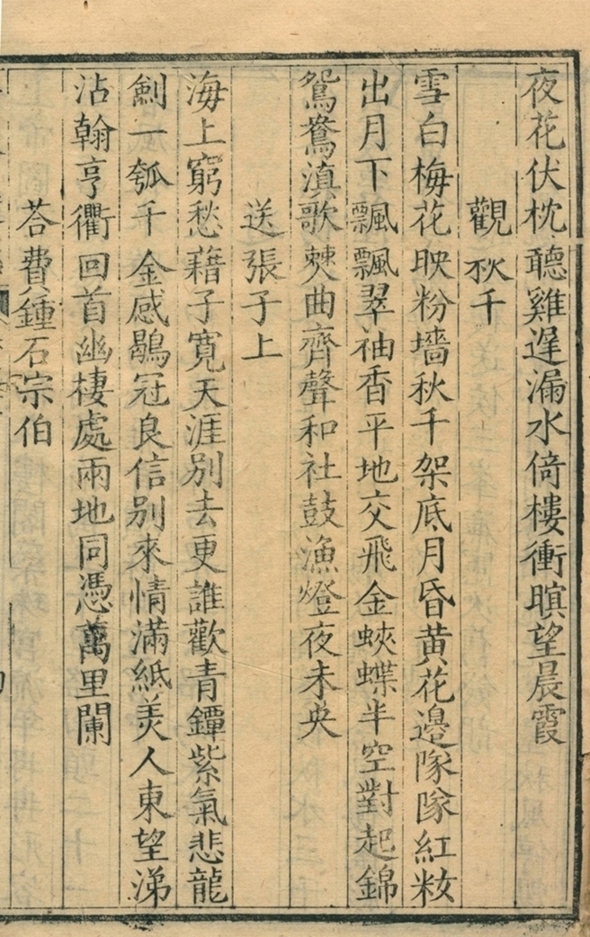 夜花伏枕聽雞遲漏水倚樓衝暝望晨霞
觀秋千
雪白梅花映粉墻秋千架底月昏黄花邊隊隊紅粧
出月下飄飄翠袖香平地交飛金蛺蝶半空對起錦
鴛鴦滇歌僰曲齊聲和社鼓漁燈夜未央
送張子上
海上窮愁藉子寛天涯別去更誰歡青鐔紫氣悲龍
劍一瓠千金感鶡冠良信别來情滿紙美人東望涕
沾翰亨衢回首幽棲處兩地同憑萬里闌
荅費鍾石宗伯